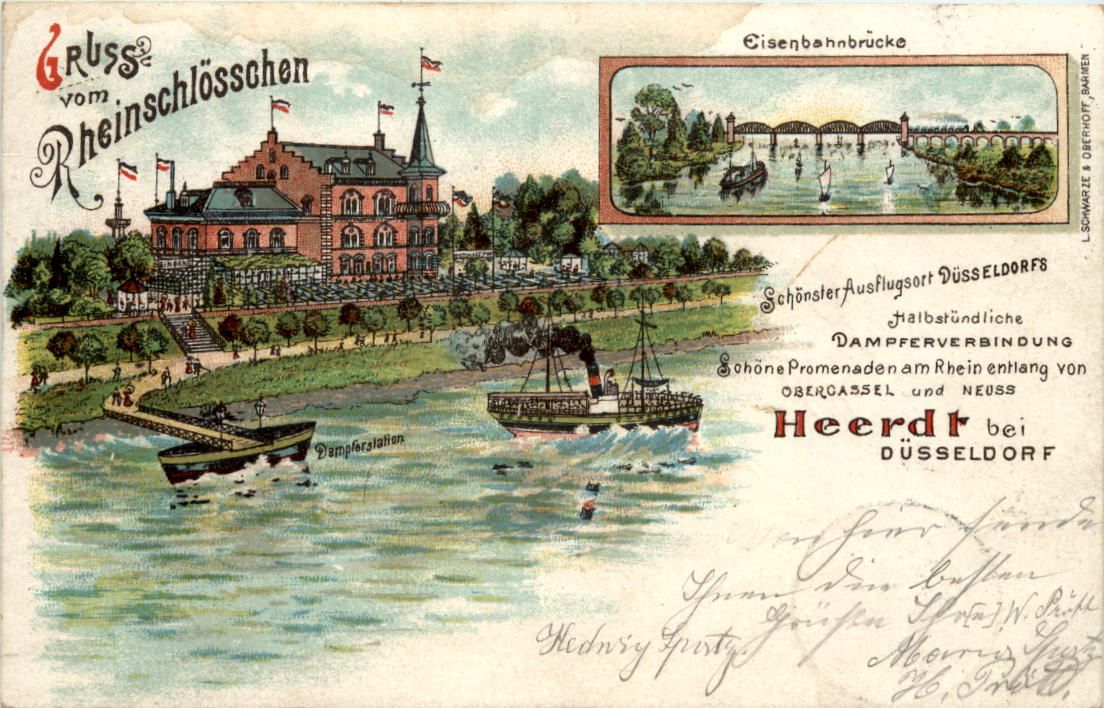 Gruss
vom
Rheinschlösschen
Eisenbahnbrücke
L. SCHWARZE & OBERHOFF, BARMEN
Schönster Ausflugsort DÜSSELDORFS
Halbstündliche
DAMPFERVERBINDUNG
Schöne Promenaden am Rhein entlang von
OBERCASSEL und NEUSS
Heerdt bei
DÜSSELDORF
Dampferstation
Von hier sende
Ihnen die besten
Grüße W.
Hedwig
Maria
H.